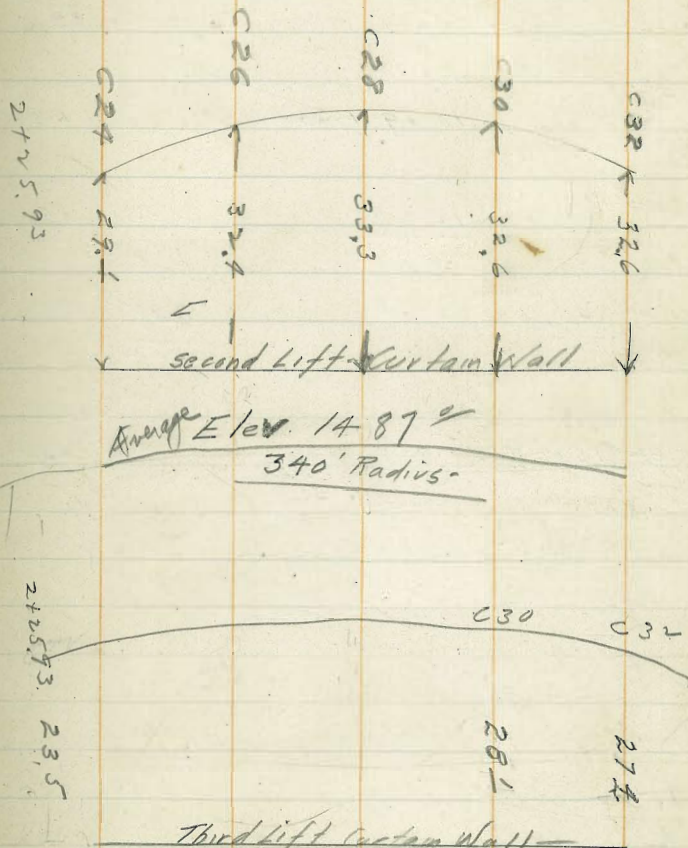 C24 C26 C28 C30 C32
2+25.93 29.1 32.4 33.3 32.6 32.6
Second Lift Curtain Wall
Average Elev. 14 87
340' Radius-
C30 C32
2+25.93 23.5 28 1
Third Lift Curtain Wall